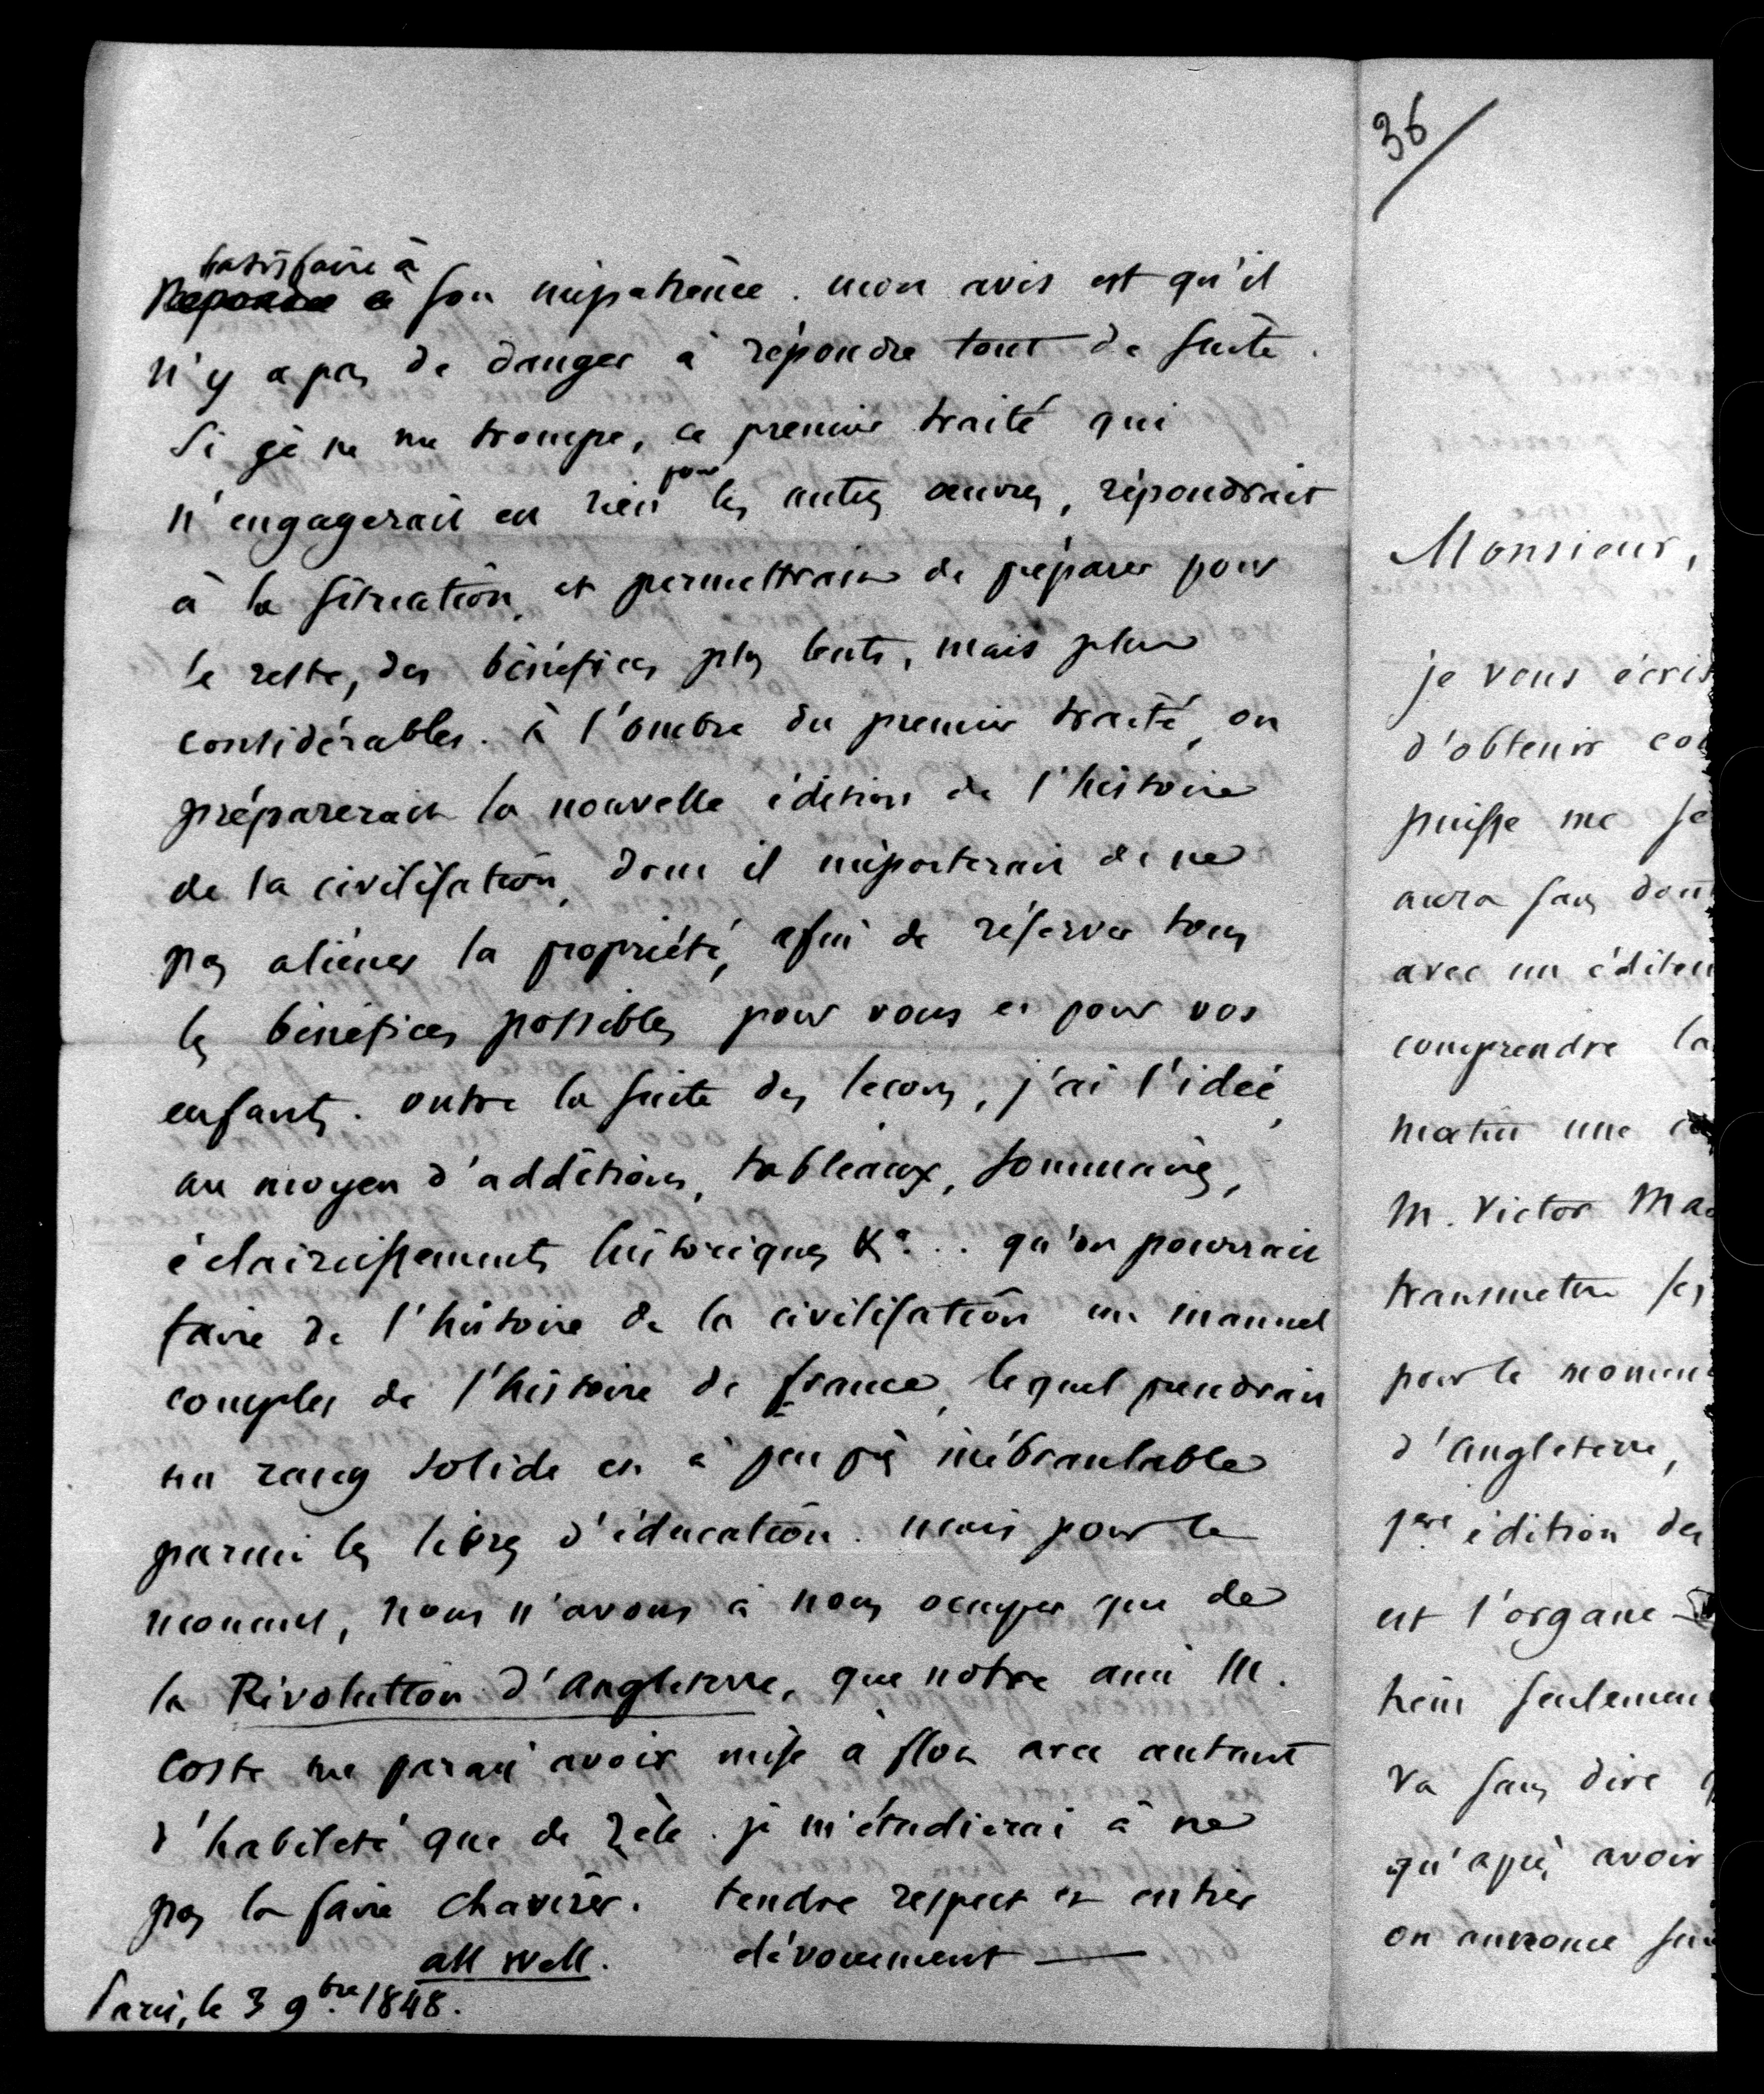 satisfaire à
Repondre à son impatience. mon avis est qu'il
n'y a pas de danger à répondre tout de suite.
Si je ne me trompe, ce premier traité qui
pour
n'engagerait en rien les autres œuvres, répondrait
à la situation, et permettrait de préparer pour
le reste, des bénéfices plus lents, mais plus
considérables. à l'ombre du premier traité, on
préparerait la nouvelle édition de l'histoire
de la civilisation, dont il importerait de ne
pas aliéner la propriété, afin de réserver tous
les bénéfices possibles pour vous et pour vos
enfants. outre la suite des leçons, j'ai l'idée,
au moyen d'additions, tableaux, sommaires,
éclaircissements historiques &a... qu'on pourrait
faire de l'histoire de la civilisation un manuel
complet de l'histoire de france, lequel prendrait
un rang solide et à peu près inébranlable
parmi les livres d'éducation. mais pour le
moment, nous n'avons à nous occuper que de
la Révolution d'Angleterre, que notre ami M.
Coste me parait avoir mise à flot avec autant
d'habileté que de zèle. je m'étudierai à ne
pas la faire chavirer. tendre respect et entier
all well. dévouement —
Paris, le 3 9bre 1848.
36
Monsieur,
je vous écris
d'obtenir
puisse me
aura sans
avec un
comprendre
matin une
M. Victor
transmettre ses
pour le
d'Angleterre,
1ere édition des
est l'organe
seulement
va sans dire
qu'après avoir
on annonce